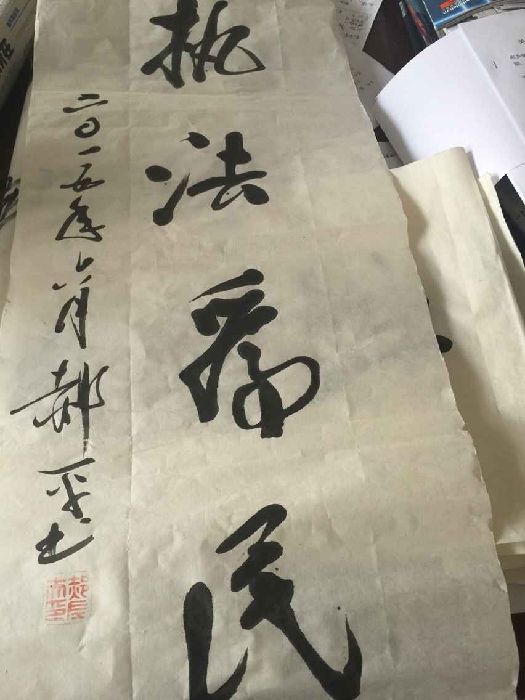 执法为民
二〇一五年六月郝平书